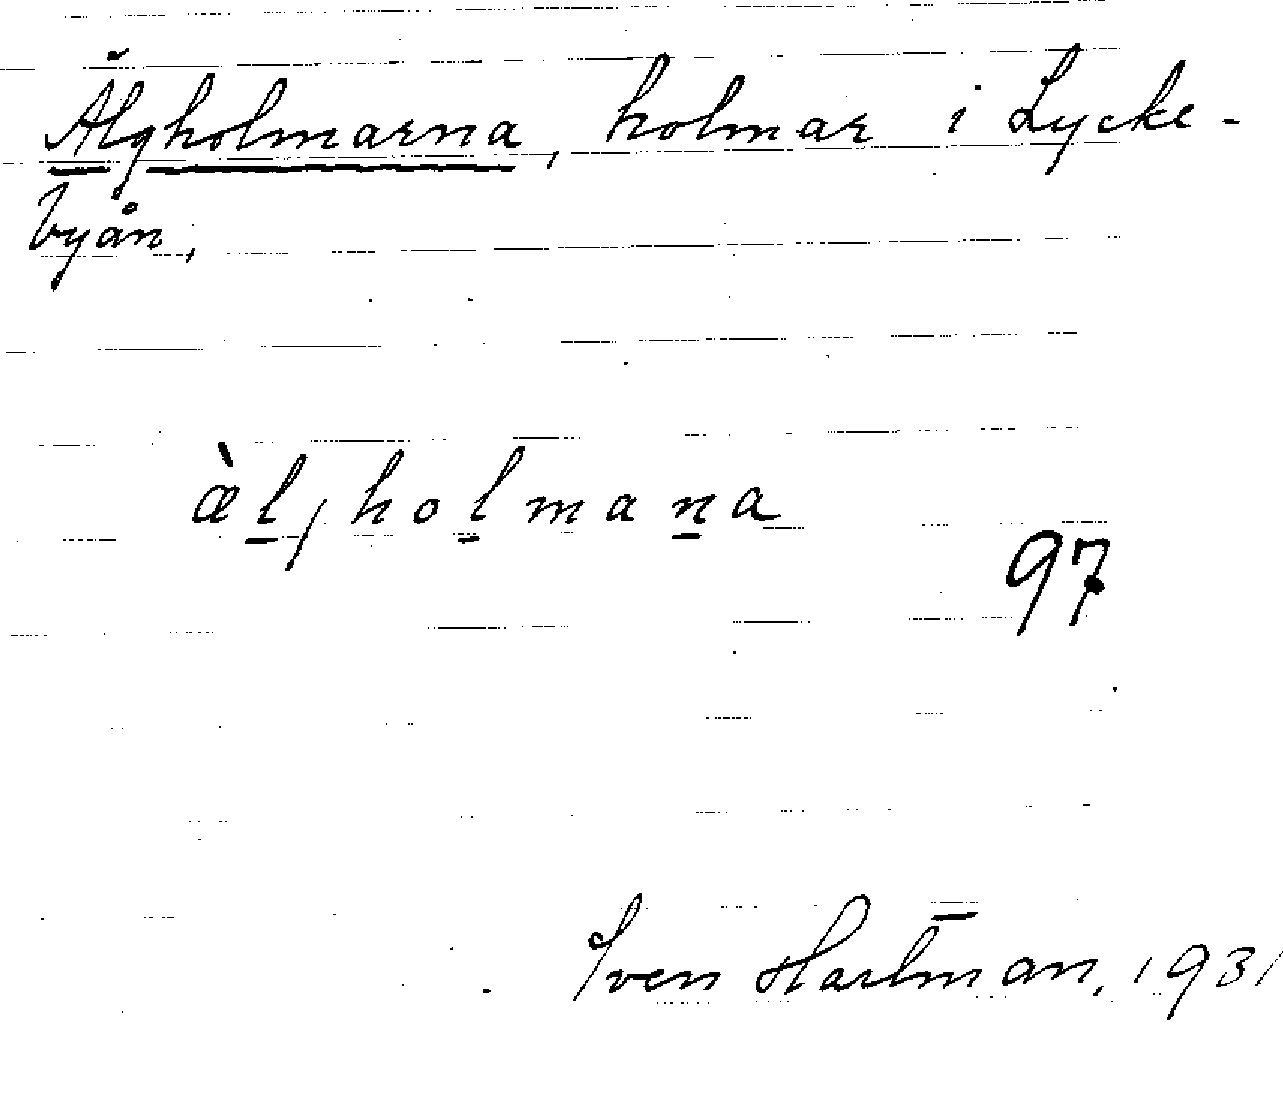 Älgholmarna, holmar i Lycke-
byån,
æ̀l̲jhol̲man̲a
97
Sven Hartman, 1931